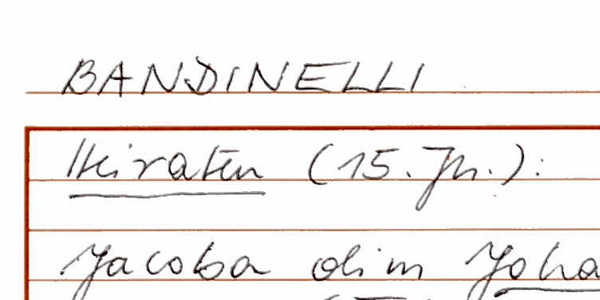 BANDINELLI
Heiraten (15. Jh.):
Jacoba olim Joha